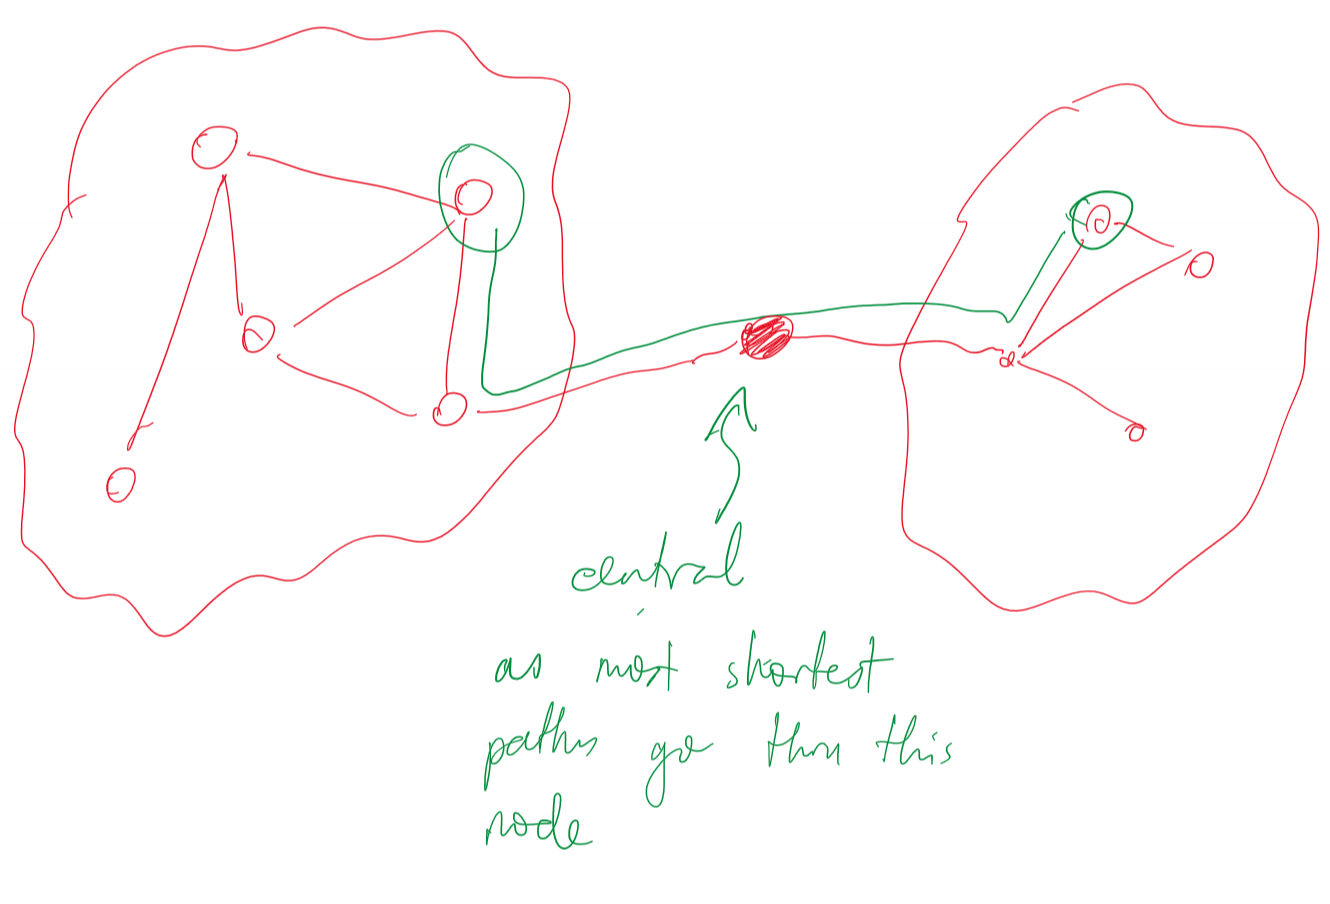 central
as most shortest
paths go thru this
node